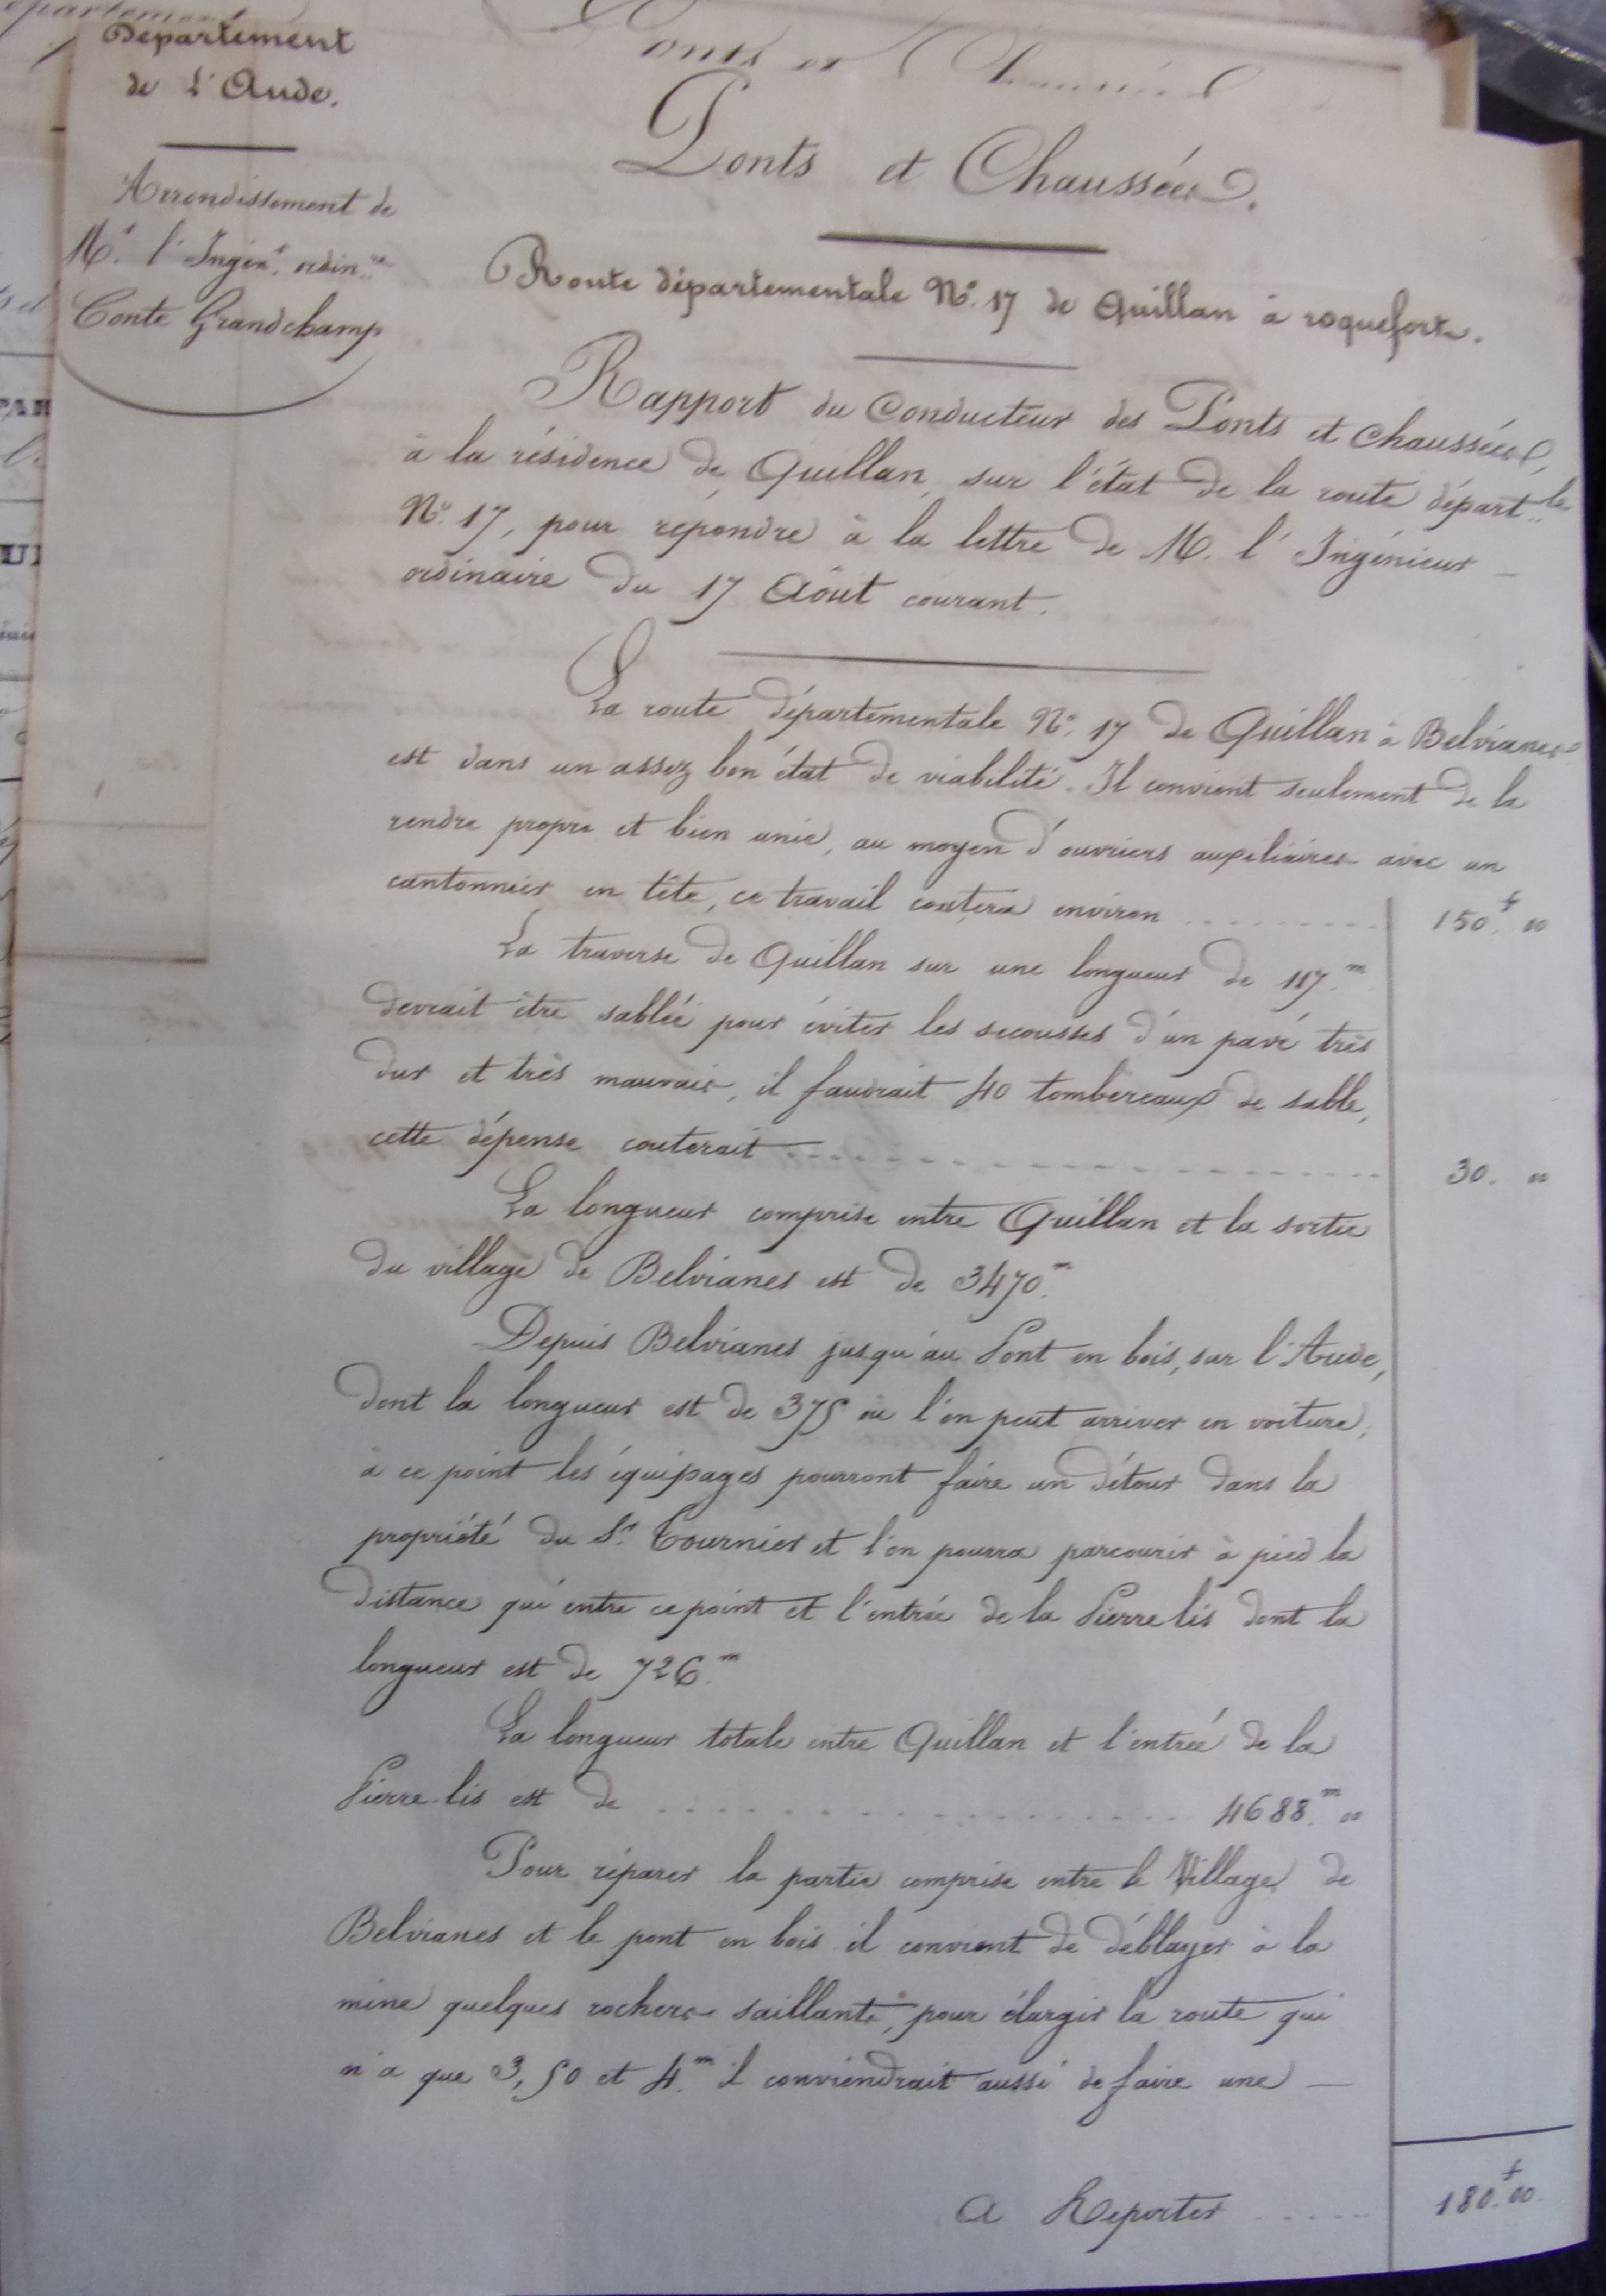 Département
de L'Aude.
Arrondissement de
Mr. l'Ingénr. ordinre
Conte Grandchamp
Ponts et Chaussées.
Route départementale No. 17 de Quillan à roquefort.
Rapport du Conducteur des Ponts et chaussées,
à la résidence de Quillan, sur l'état de la route départle
No. 17, pour répondre à la lettre de M. l'Ingénieur
ordinaire du 17 Août courant.
La route départementale No. 17 de Quillan à Belvianes
est dans un assez bon état de viabilité. Il convient seulement de la
rendre propre et bien unie, au moyen d'ouvriers auxiliaires avec un
cantonnier en tête, ce travail coutera environ ........ 150f. 00
La traverse de Quillan sur une longueur de 117.m
devrait être sablée pour éviter les secousses d'un pavé très
dur et très mauvais, il faudrait 40 tombereaux de sable,
cette dépense couterait ........ 30. 00
La longueur comprise entre Quillan et la sortie
du village de Belvianes est de 3470.m
Depuis Belvianes jusqu'au Pont en bois, sur l'Aude,
dont la longueur est de 375 où l'on peut arriver en voiture,
à ce point les équipages pourront faire un détour dans la
propriété du Sr. Tournier et l'on pourra parcourir à pied la
distance qui entre ce point et l'entrée de la Pierre lis dont la
longueur est de 726.m
La longueur totale entre Quillan et l'entrée de la
Pierre-lis est de ........ 4688.m 00
Pour réparer la partie comprise entre le Village de
Belvianes et le pont en bois il convient de déblayer à la
mine quelques rochers saillants, pour élargir la route qui
n'a que 3,50 et 4.m il conviendrait aussi de faire une
A Reporter ..... 180f. 00.